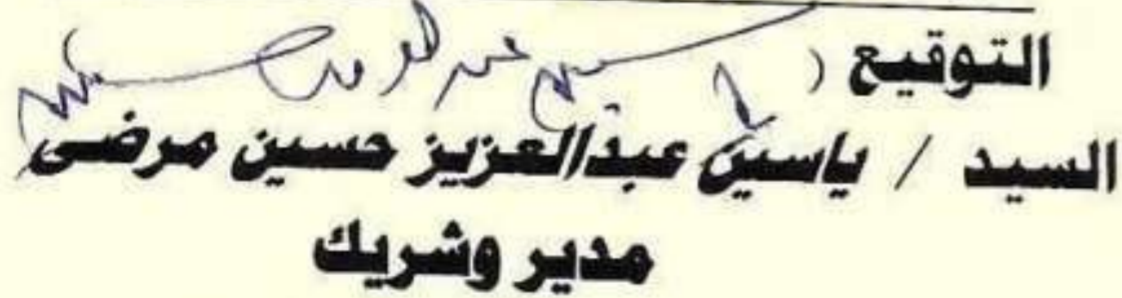 التوقيع (
السيد / ياسين عبدالعزيز حسين مرضى
مدير وشريك